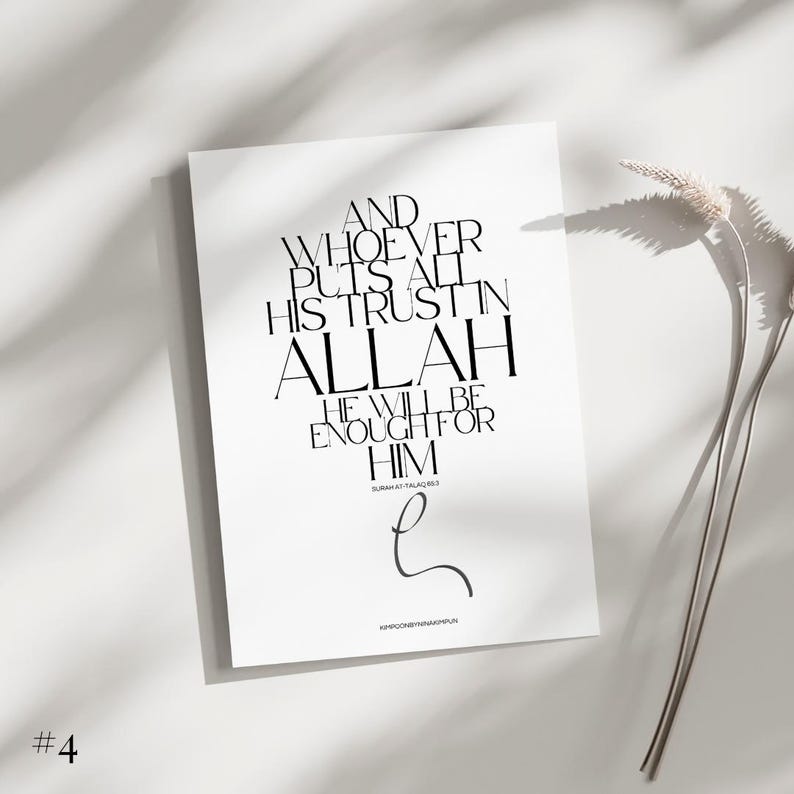 AND
WHOEVER
PUTS ALL
HIS TRUST IN
ALLAH
HE WILL BE
ENOUGH FOR
HIM
SURAH AT-TALAQ 65:3
KIMPOONBYNINAKIMPUN
#4